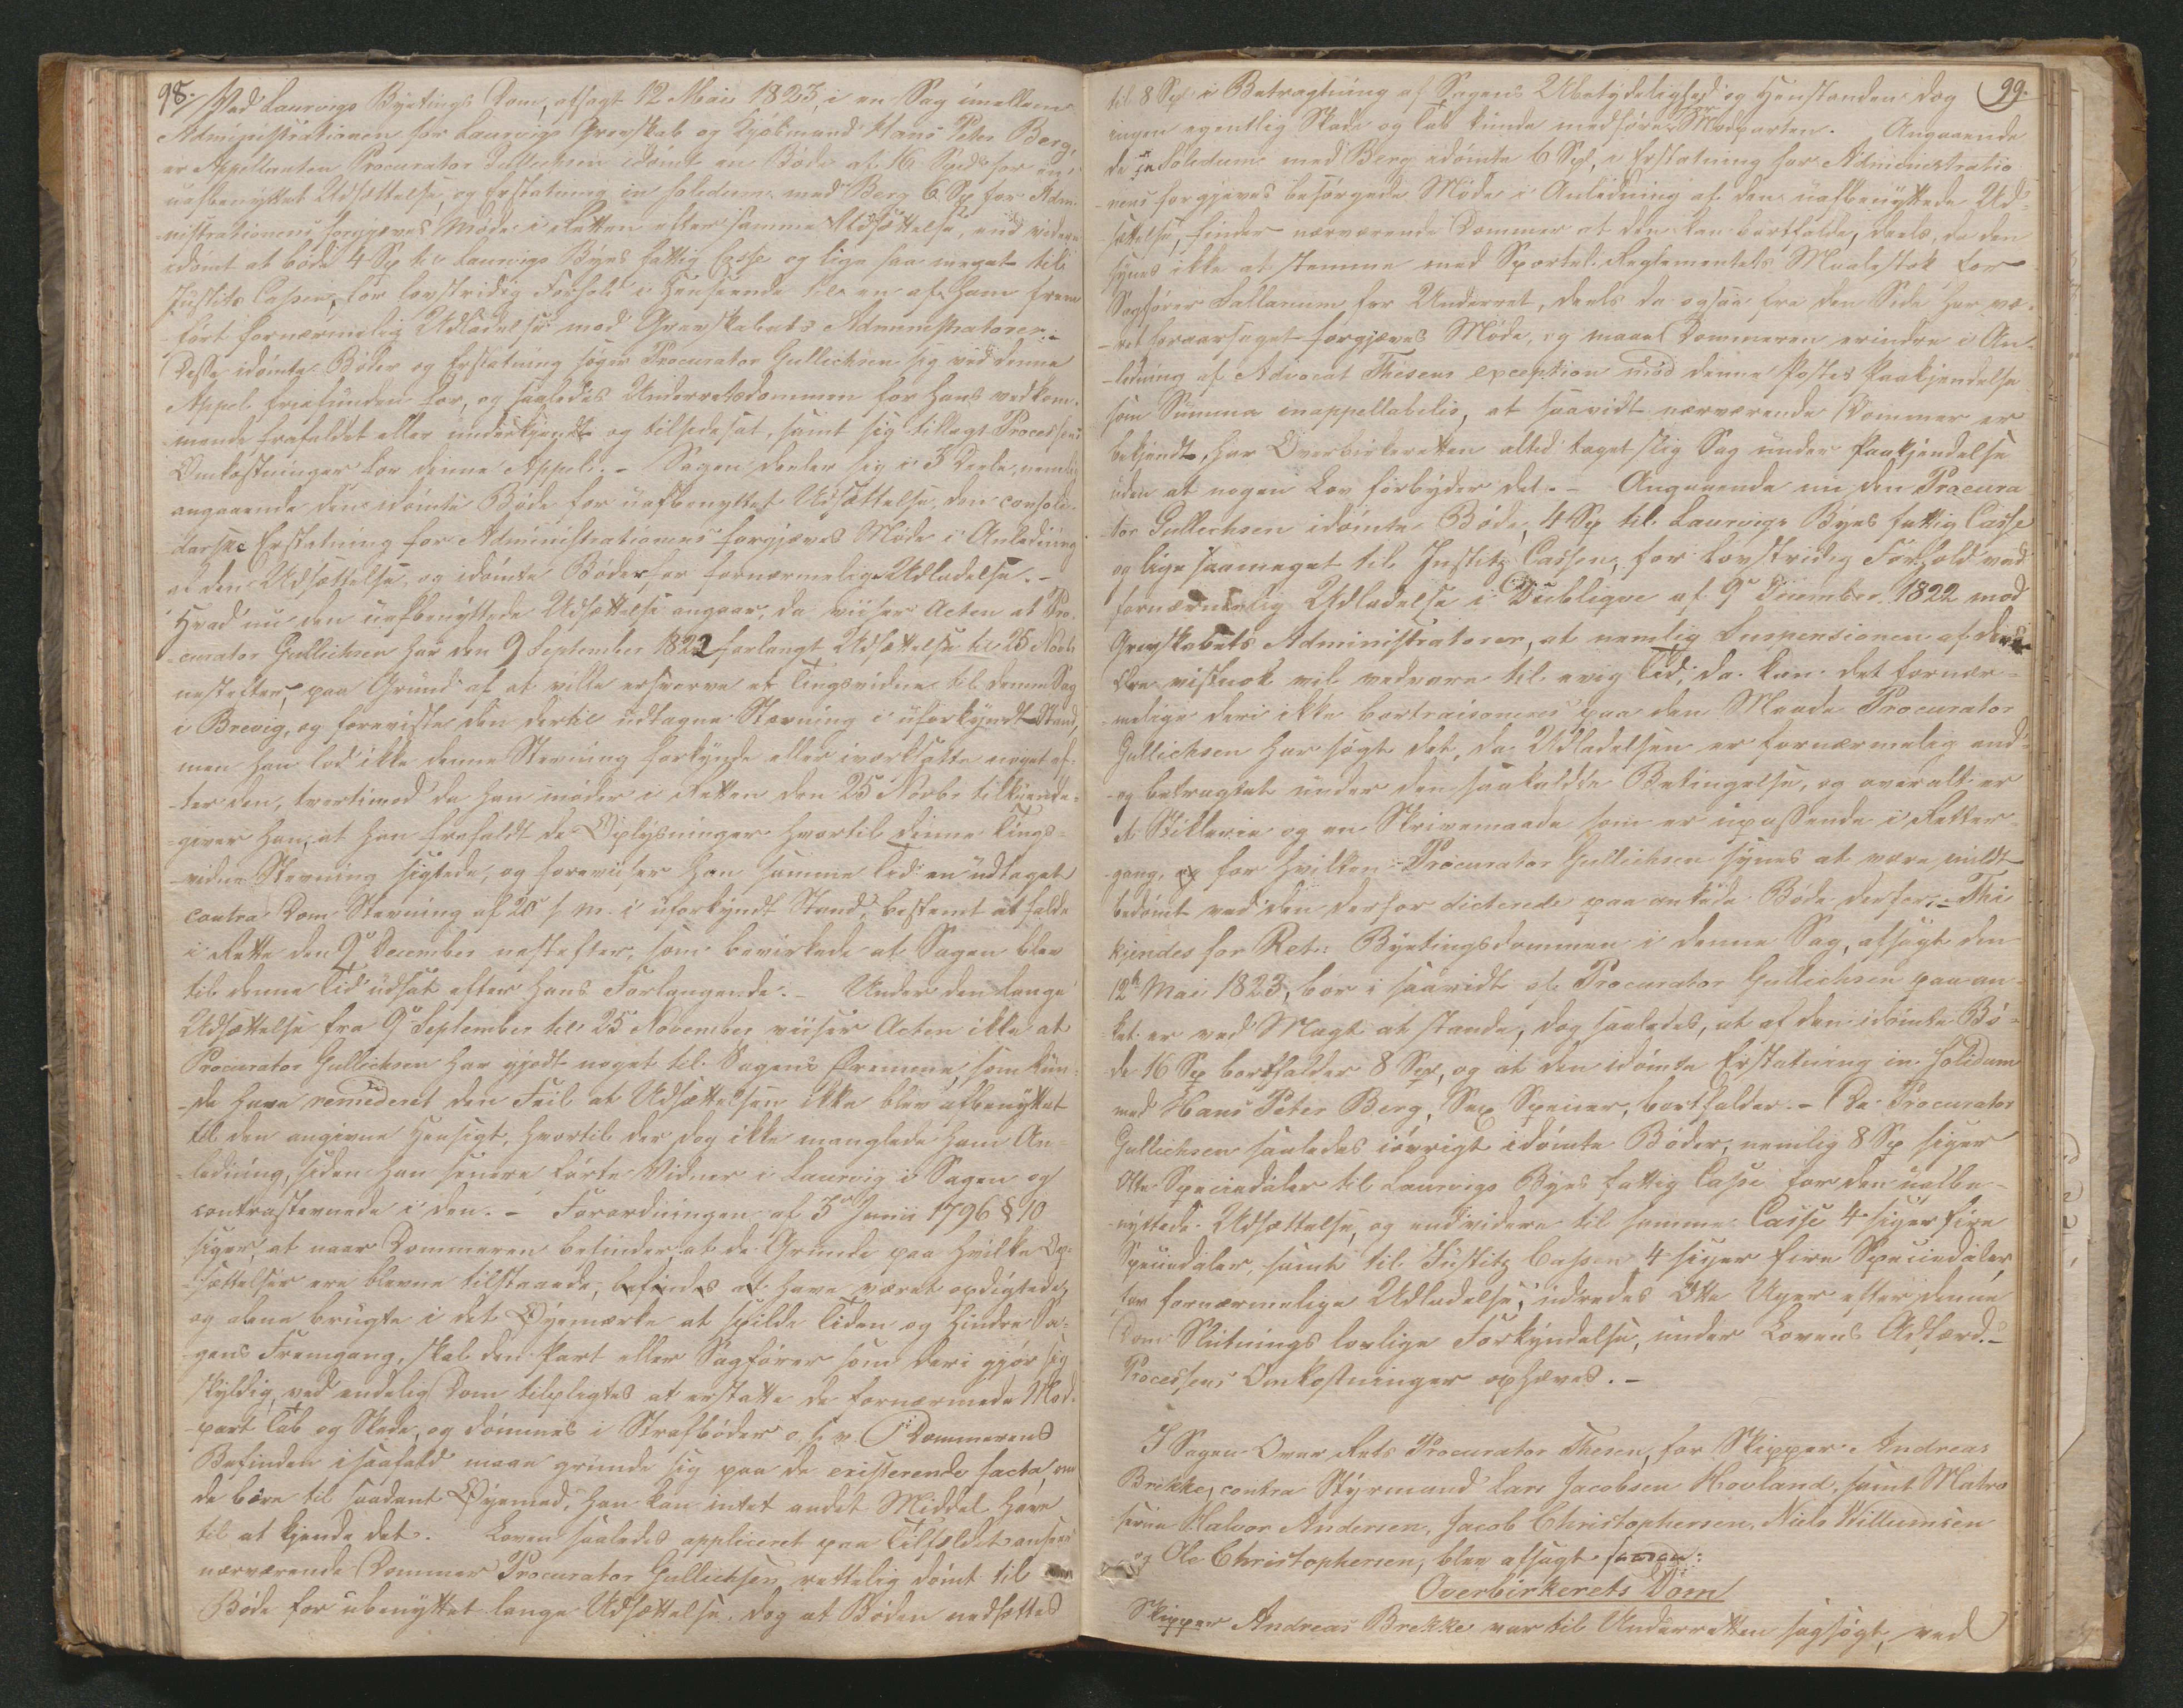 98.
Ved Laurvigs Byetings Dom, afsagt 12 Mai 1823, i en Sag imellem
Administrationen for Laurvigs Grevskab og Kjøbmand Hans Peter Berg,
er Appellanten Procurator Gullichsen idømt en Bøde af 16 Spd for en
uafbenyttet Udsættelse, og Erstatning in solidum med Berg 6 Sp for Adm-
nistrationens forgjæves Møde i Retten efter samme Udsættelse, end videre
idømt at bøde 4 Sp til Laurvigs Byes fattig Casse og lige saa meget til
Justits Cassen, for lovstridig Forhold i Henseende til en af ham frem
ført fornærmelig Udladelse mod Grevskabets Administratorer.-
Disse idømte Bøder og Erstatning søger Procurator Gullichsen sig ved denne
Appel friefunden for, og saaledes Underretsdommen for hans vedkom-
mende frafaldet eller underkjendt og tilsidesat, samt sig tillagt Processens
Omkostninger for denne Appel.- Sagen deeler sig i 3 Deele, nemlig
angaaende den idømte Bøde for uafbenyttet Udsættelse, den consoli-
dariske Erstatning for Administrationens forgjæves Møde i Anledning
af den Udsættelse, og idømte Bøder for fornærmelige Udladelse.-
Hvad nu den uafbenyttede Udsættelse angaaer, da viiser Acten at Pro-
curator Gullichsen har den 9 September 1822 forlangt Udsættelse til 25 Novbr
nestefter, paa Grund af at ville erhverve et Tingsvidne til denne Sag
i Brevig, og foreviste den dertil udtagne Stevning i uforkyndt Stand,
men han lod ikke denne Stevning forkynde eller iverksatte noget ef-
ter den, tvertimod da han møder i Retten den 25 Novbr tilkjende-
giver han, at han frafaldt de Oplysninger hvortil denne Tings-
vidne Stevning sigtede, og foreviiser han samme Tid en udtaget
contra Dom Stevning af 20 s. m. i uforkyndt Stand, bestemt at falde
i Rette den 9 December nestefter, som bevirkede at Sagen blev
til denne Tid udsat efter hans Forlangende.- Under den lange
Udsættelse fra 9 September til 25 November viiser Acten ikke at
Procurator Gullichsen har gjort noget til Sagens Fremme, som kun-
de have remederet den Feil at Udsættelsen ikke blev afbenyttet
til den angivne Hensigt, hvortil der dog ikke manglede ham An-
ledning, siden han senere førte Vidner i Laurvig i Sagen og
contrastevnede i den.- Forordningen af 3 Junii 1796 § 10
siger, at naar Dommeren befinder at de Grunde paa hvilke Op-
sættelser ere blevne tilstaaede, befindes at have været opdigtede,
og alene brugte i det Øyemærke at spilde Tiden og hindre Sa-
gens Fremgang, skal den Part eller Sagfører som deri gjør sig
skyldig, ved endelig Dom tilpligtes at erstatte de fornærmede Mod-
part Tab og Skade, og dømmes i Strafbøder o. s. v. Dommerens
Befinden isaafald maae grunde sig paa de existerende facta, om
de bære til saadant Øyemed, han kan intet andet Middel have
til at kjende det. Loven saaledes appliceret paa Tilfældet anseer
nærværende Dommer Procurator Gullichsen rettelig dømt til
Bøde for ubenyttet lange Udsættelse, dog at Bøden nedsættes
99.
til 8 Spd i Betragtning af Sagens Ubetydelighed og Henstanden dog
ingen egentlig Skade og Tab kunde medføre for Modparten. Angaaende
de in Solidum med Berg idømte 6 Spd, i Erstatning for Administratio
nens forgjæves besørgede Møde i Anledning af den uafbenyttede Ud-
sættelse, finder nærværende Dommer at den kan bortfalde, deels, da den
synes ikke at stemme med Sportel-Reglementets Maalestok for
Sagfører Sallarium for Underret, deels da ogsaa fra den Side har væ-
ret foraarsaget forgjæves Møde, og maae Dommeren erindre i An-
ledning af Advocat Thesens exception mod denne Postes Paakjendelse
som Summa inappellabilis, at saavidt nærværende Dommer er
bekjendt, har Overbirkeretten altid taget slig Sag under Paakjendelse
uden at nogen Lov forbyder det.- Angaaende nu den Procura
tor Gullichsen idømte Bøde, 4 Sp til Laurvigs Byes fattig Casse
og lige saameget til Justitz Cassen, for lovstridig Forhold ved
fornærmelig Udladelse i Dublique af 9 December 1822 mod
Grevskabets Administratorer, at nemlig Suspensionen af deres
Ære vistnok vil vedvare til evig Tid, da kan det fornær-
melige deri ikke bortraisoneres paa den Maade Procurator
Gullichsen har søgt det, da Udladelsen er fornærmelig end-
og betragtet under den saakaldte Betingelse, og overalt er
et Stiklerie og en Skrivemaade som er upassende i Retter-
gang, for hvilken Procurator Gullichsen synes at være mildt
bedømt ved den derfor dicterede paaankede Bøde derfor.- Thi
kjendes for Ret: Byetingsdommen i denne Sag, afsagt den
12 Mai 1823, bør i saavidt af Procurator Gullichsen paaan-
ket er ved Magt at stande, dog saaledes, at af den idømte Bø-
de 16 Sp bortfalder 8 Spd, og at den idømte Erstatning in Solidum
med Hans Peter Berg, Sex Specier, bortfalder.- De Procurator
Gullichsen saaledes iøvrigt idømte Bøder, nemlig 8 Sp siger
Otte Speciedaler til Laurvigs Byes fattig Casse for den uafbe-
nyttede Udsættelse, og endvidere til samme Casse 4 siger fire
Speciedaler, samt til Justitz Cassen 4 siger fire Speciedaler,
for fornærmelige Udladelse, udredes Otte Uger efter denne
Dom Slutnings lovlige Forkyndelse, under Lovens Adfærd.-
Processens Omkostninger ophæves.-
I Sagen Over Rets Procurator Thesen, for Skipper Andreas
Brekke, contra Styrmand Lars Jacobsen Hovland, samt Matro
serne Halvor Andersen, Jacob Christophersen, Niels Willumsen
og Ole Christophersen, blev afsagt saadan:
Overbirkerets Dom
Skipper Andreas Brekke var til Underretten sagsøgt, ved